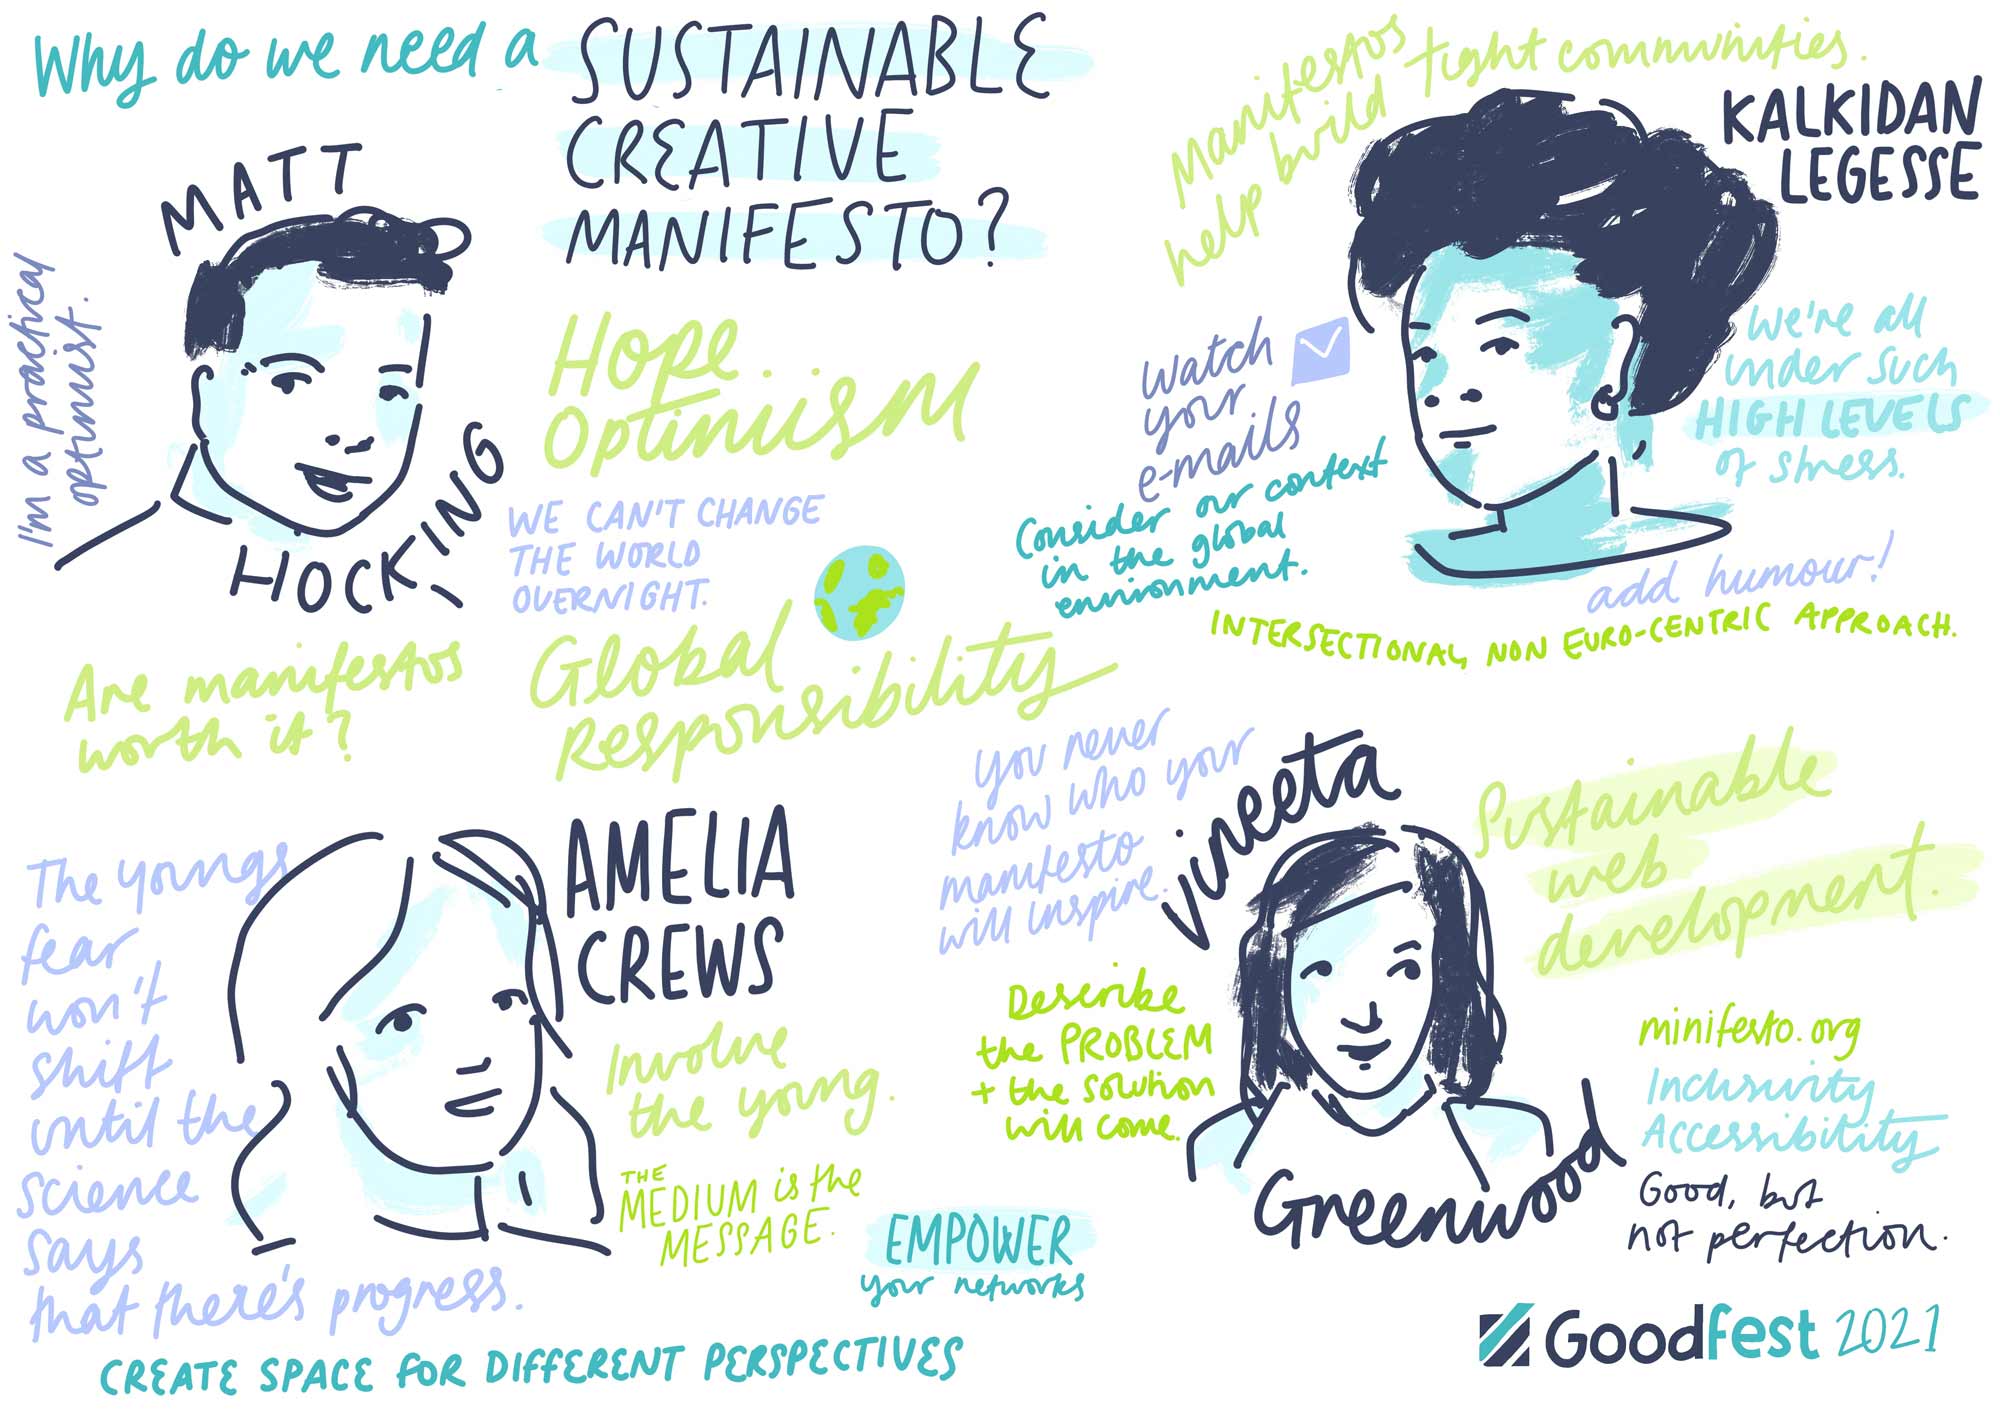 Why do we need a
SUSTAINABLE
CREATIVE
MANIFESTO?
MATT
HOCKING
I'm a practical
optimist.
Hope
Optimism
WE CAN'T CHANGE
THE WORLD
OVERNIGHT.
Global
Responsibility
Are manifestos
worth it?
Manifestos
help build tight communities.
KALKIDAN
LEGESSE
Watch
your
e-mails
Consider our context
in the global
environment.
We're all
under such
HIGH LEVELS
of stress.
add humour!
INTERSECTIONAL, NON EURO-CENTRIC APPROACH.
AMELIA
CREWS
The youngs
fear
won't
shift
until the
science
says
that there's progress.
Involve
the young.
THE
MEDIUM is the
MESSAGE.
EMPOWER
your networks
CREATE SPACE FOR DIFFERENT PERSPECTIVES
You never
know who your
manifesto
will inspire.
Vineeta
Greenwood
Describe
the PROBLEM
+ the solution
will come.
Sustainable
web
development.
minifesto.org
Inclusivity
Accessibility
Good, but
not perfection.
Goodfest 2021